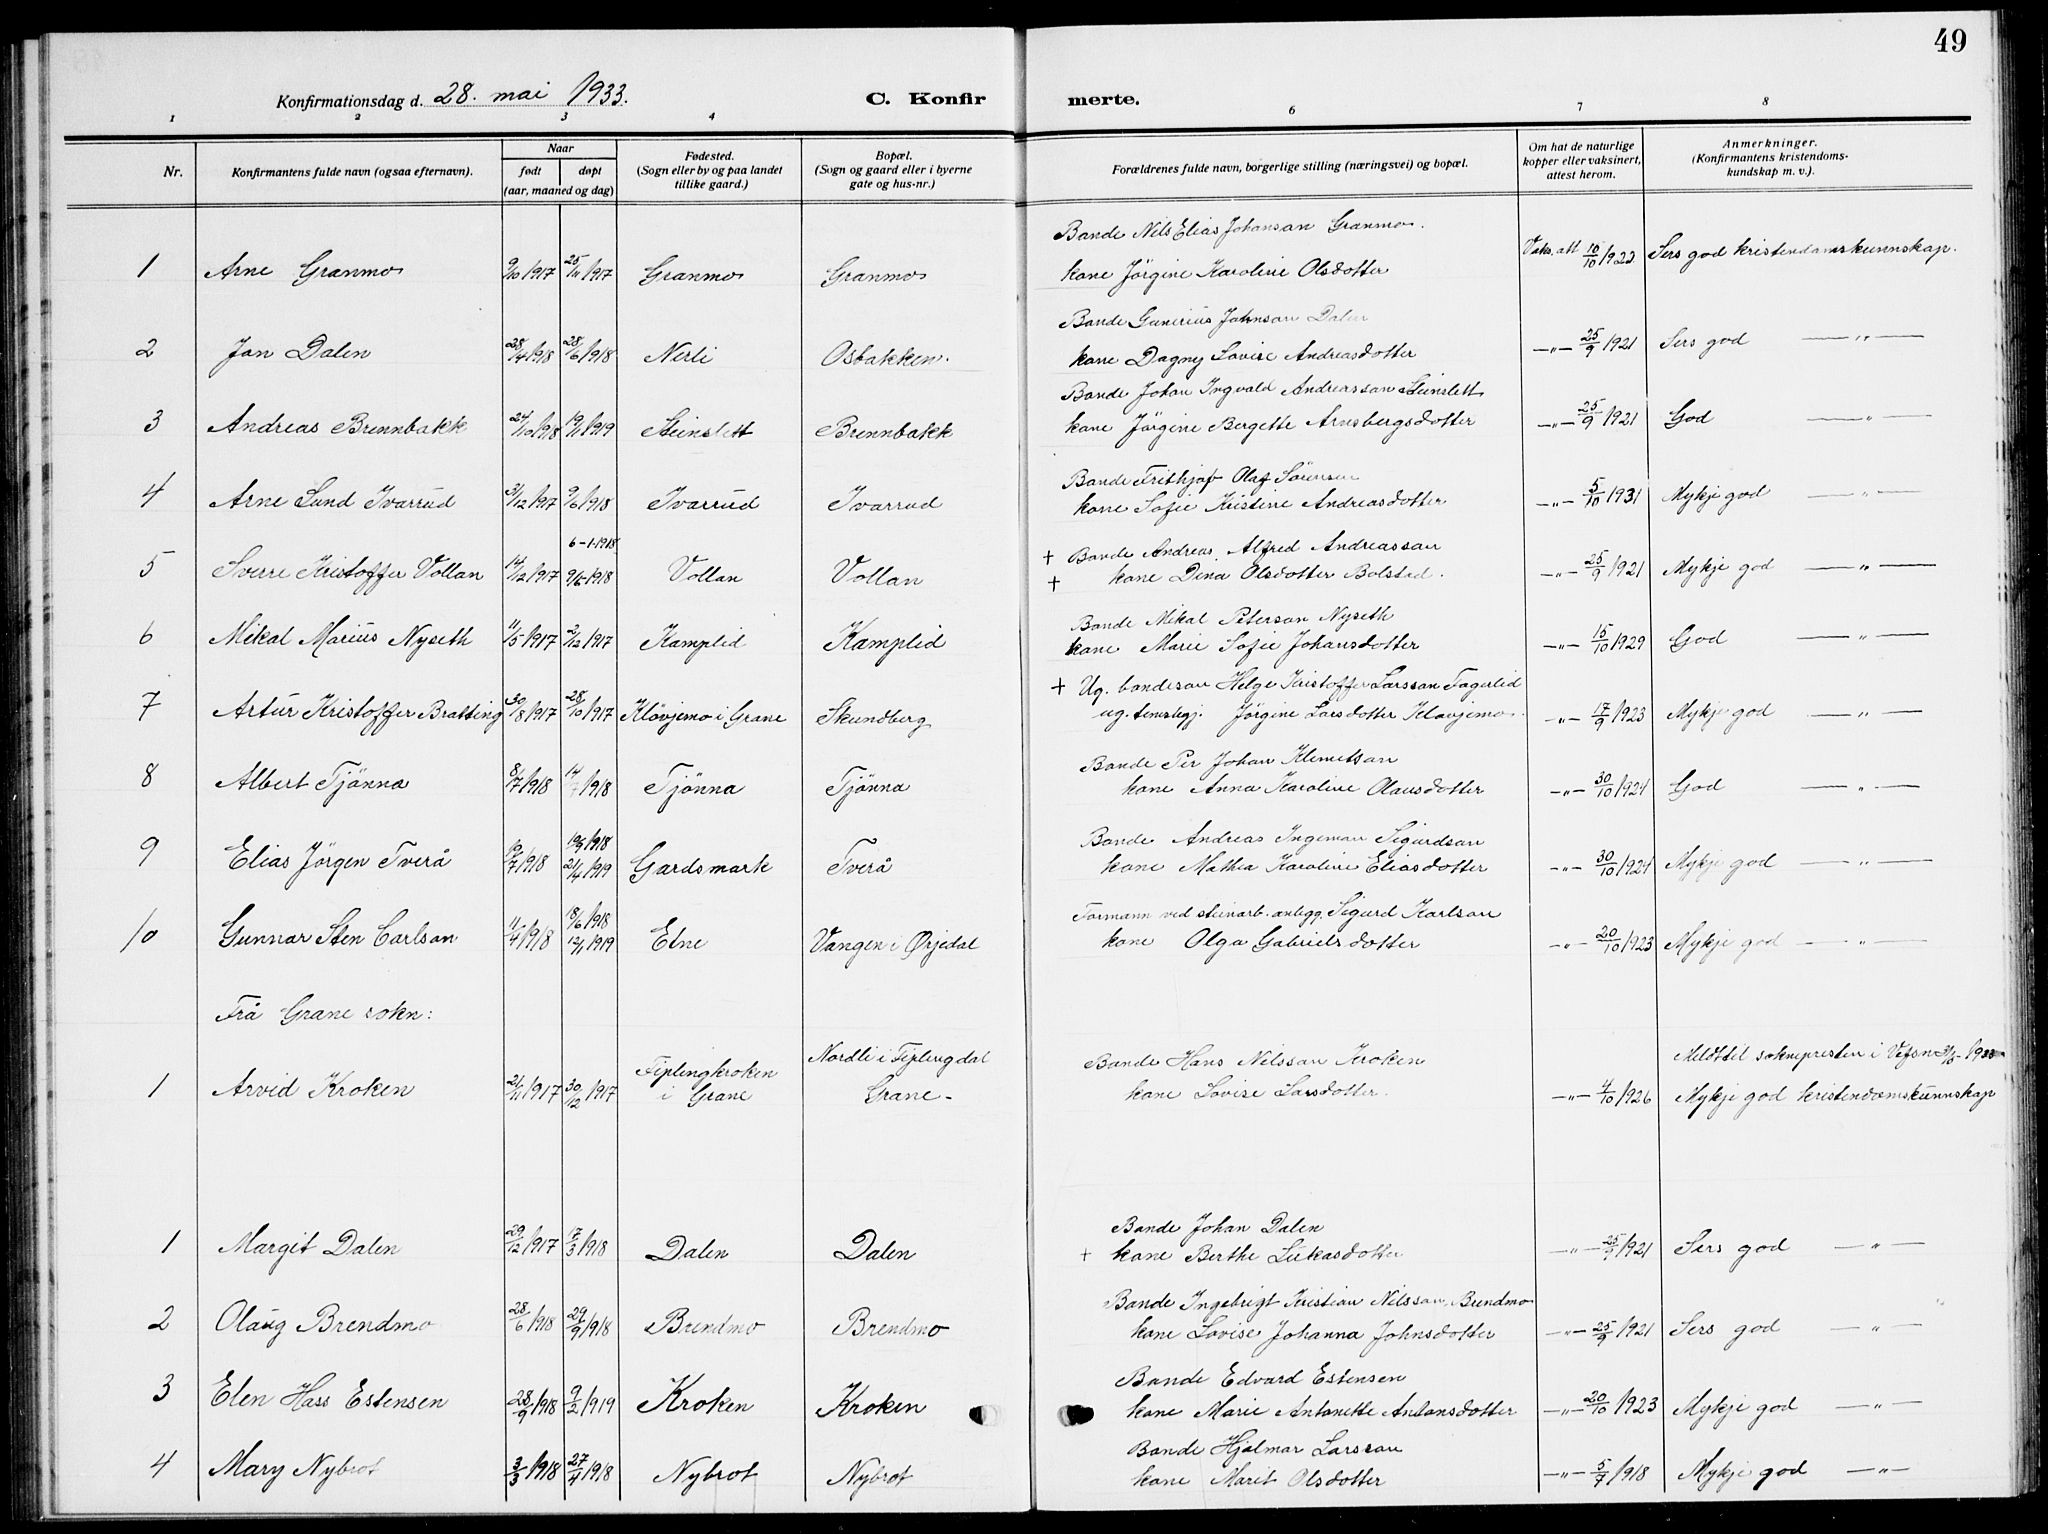 49
Konfirmationsdag d. 28. mai 1933.
C. Konfirmerte.
1 2 3 4 6 7 8
Nr.
Konfirmantens fulde navn (ogsaa efternavn).
Naar
født døpt
(aar, maaned og dag)
Fødested.
(Sogn eller by og paa landet
tillike gaard.)
Bopæl.
(Sogn og gaard eller i byerne
gate og hus-nr.)
Forældrenes fulde navn, borgerlige stilling (næringsvei) og bopæl.
Om hat de naturlige
kopper eller vaksinert,
attest herom.
Anmerkninger.
(Konfirmantens kristendoms-
kundskap m. v.).
Bonde Nils Elias Johansan Granmo.
1 Arne Granmo 9/10 1917 25/11 1917 Granmo Granmo kone Jörgine Karoline Olsdotter Vaks. att 16/10 1922 Sers god kristendomskunnskap.
Bonde Gunerius Johnsan Dalen
2 Jon Dalen 28/4 1918 28/6 1918 Nerli Osbakken. kone Dagny Lovise Andreasdotter —"— 25/9 1921 Sers god —"—
Bonde Johan Ingvald Andreassan Steinslett
3 Andreas Brennbakk 24/10 1918 19/1 1919 Steinslett Brennbakk kone Jörgine Bergette Arnsbergsdotter —"— 25/9 1921 God —"—
Bonde Frithjof Olaf Sörensen
4 Arne Lund Ivarrud 31/12 1917 9/6 1918 Ivarrud Ivarrud kone Sofie Kristine Andreasdotter —"— 5/10 1931 Mykje god —"—
6-1-1918
+ Bonde Andreas Alfred Andreassan
5 Sverre Kristoffer Vollan 14/12 1917 9/6 1918 Vollan Vollan + kone Dina Olsdotter Bolstad. —"— 25/9 1921 Mykje god —"—
Bonde Mikal Petersan Nyseth
6 Mikal Marius Nyseth 11/5 1917 2/12 1917 Kamplid Kamplid kone Marie Sofie Johansdotter —"— 15/10 1929 God —"—
+ Ug. bondeson Helge Kristoffer Larssan Fagerlid
7 Artur Kristoffer Bratting 30/8 1917 28/10 1917 Klövjemo i Grane Skundberg ug. tenestegj. Jörgine Larsdotter Klovjemo. —"— 17/9 1923 Mykje god —"—
Bonde Per Johan Klemetsan
8 Albert Tjönna 8/7 1918 14/7 1918 Tjönna Tjönna kone Anna Karoline Olausdotter —"— 30/10 1924 God —"—
Bonde Andreas Ingeman Sigurdsan
9 Elias Jörgen Tverå 19/7 1918 1918 21/4 1919 Gardsmark Tverå kone Mathea Karoline Eliasdotter —"— 30/10 1924 Mykje god —"—
Formann ved steinarb. anlegg. Sigurd Karlsan
10 Gunnar Sten Carlsan 11/4 1918 18/6 1918 12/1 1919 Elne Vangen i Örjedal kone Olga Gabrielsdotter —"— 20/10 1923 Mykje god —"—
Frå Grane sokn:
Fiplingkroken Nordli i Fiplingdal Bonde Hans Nilssan Kroken Meldt til soknepresten i Vefsn
1 Arvid Kroken 21/11 1917 30/12 1917 i Grane Grane- kone Lovise Larsdotter. —"— 4/10 1926 Mykje god kristendomskunnskap
Bonde Johan Dalen
1 Margit Dalen 29/12 1917 17/3 1918 Dalen Dalen + kone Berthe Lukasdotter —"— 25/9 1921 Sers god —"—
Bonde Ingebrigt Kristian Nilssan, Brendmo
2 Olaug Brendmo 28/6 1918 29/9 1918 Brendmo Brendmo kone Lovise Johanna Johnsdotter —"— 25/9 1921 Sers god —"—
Bonde Edvard Estensen
3 Elen Hass Estensen 28/9 1918 9/2 1919 Kroken Kroken kone Marie Antonette Antonsdotter —"— 20/10 1923 Mykje god —"—
Bonde Hjalmar Larssan
4 Mary Nybrot 3/3 1918 27/4 1918 Nybrot Nybrot kone Marit Olsdotter —"— 5/7 1918 Mykje god —"—